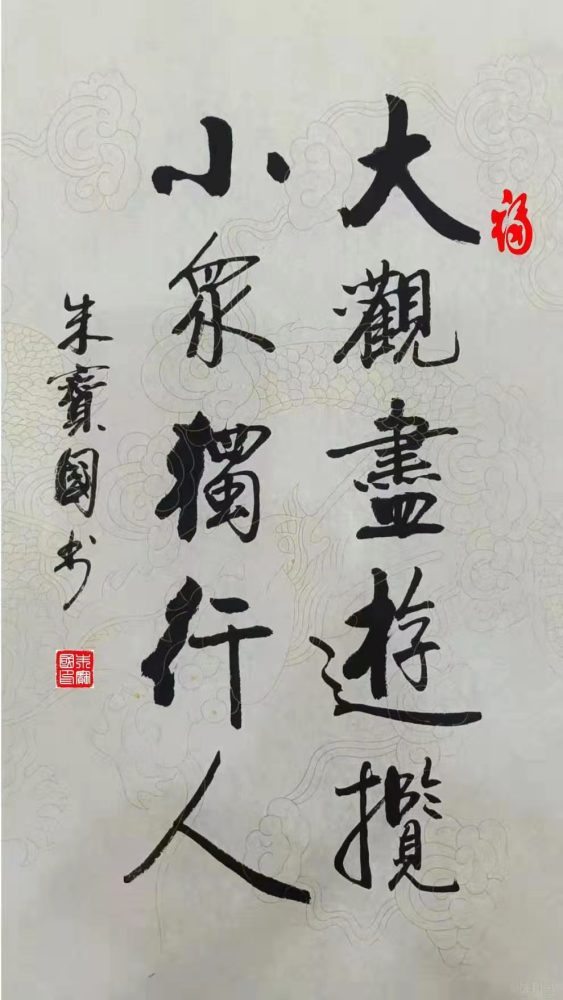 福
大觀盡遊攬
小眾獨行人
朱寶國书
朱寶國印